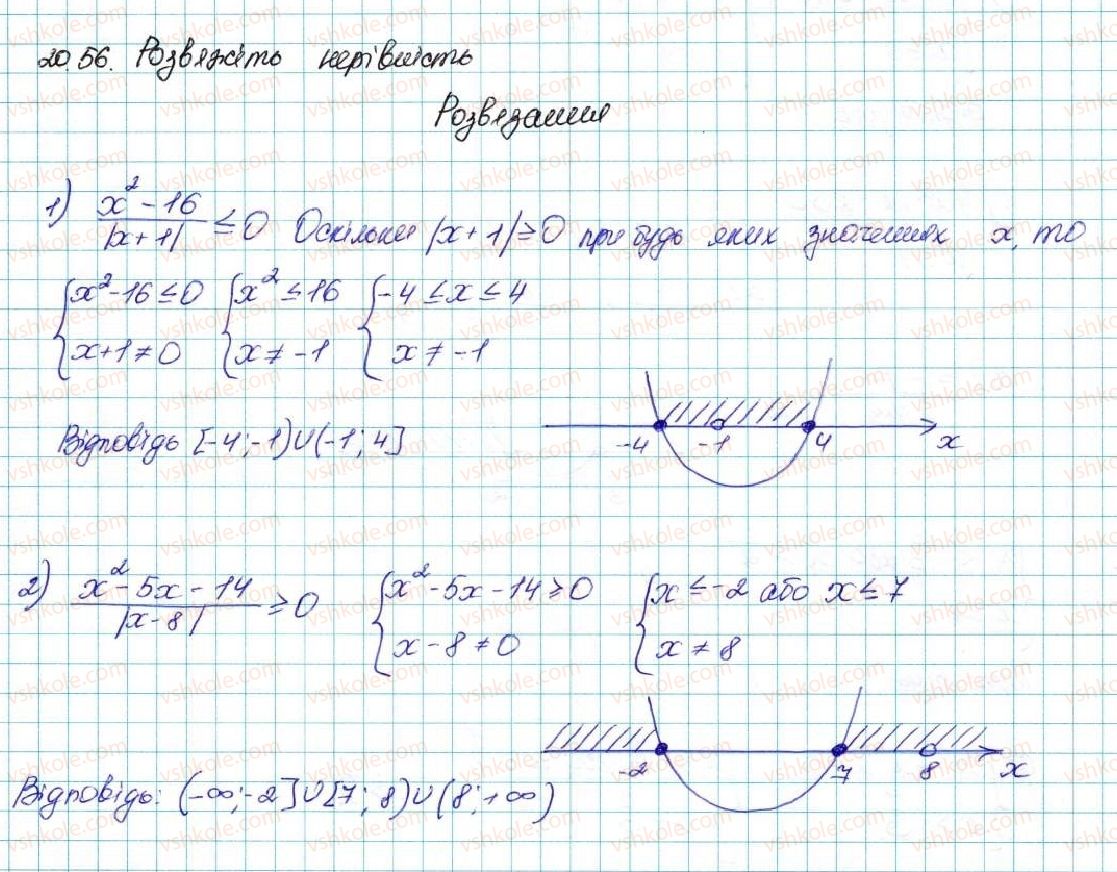 20.56. Розвяжіть нерівність
Розвязання
1) x² - 16 / |x + 1| ≤ 0 Оскільки |x + 1| ≥ 0 при будь яких значеннях x, то
{x² - 16 ≤ 0 {x² ≤ 16 {-4 ≤ x ≤ 4
x + 1 ≠ 0 x ≠ -1 x ≠ -1
-4 -1 4 x
Відповідь [-4; -1) ∪ (-1; 4]
2) x² - 5x - 14 / |x - 8| ≥ 0 {x² - 5x - 14 ≥ 0 {x ≤ -2 або x ≤ 7
x - 8 ≠ 0 x ≠ 8
-2 7 8 x
Відповідь: (-∞; -2] ∪ [7; 8) ∪ (8; +∞)
vshkole.com